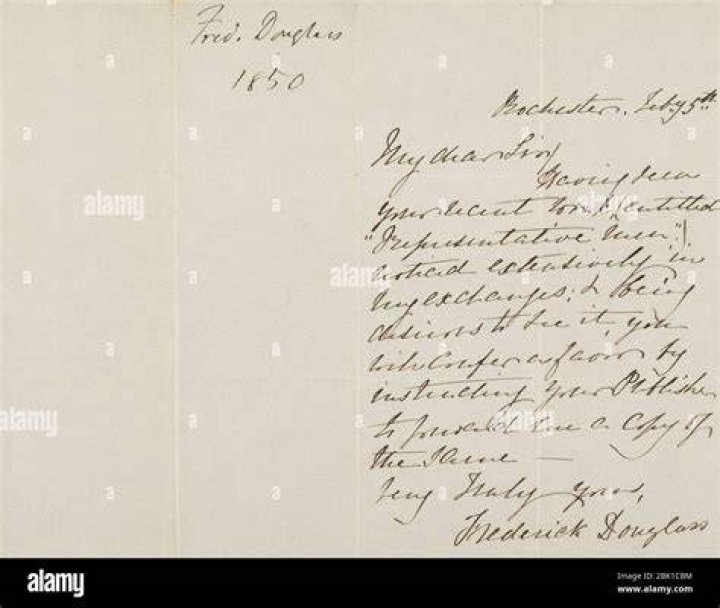 Fred. Douglass
1850
Rochester. Feby 5th
My dear Sir,
Having seen
your recent work (entitled
"Representative Men")
noticed extensively in
my exchanges; & being
desirous to see it, you
will confer a favor by
instructing your Publisher
to forward me a Copy of
the Same —
Very Truly yours,
Frederick Douglass
alamy
alamy
alamy
alamy
alamy
alamy
Image ID: 2BK1CBM
www.alamy.com